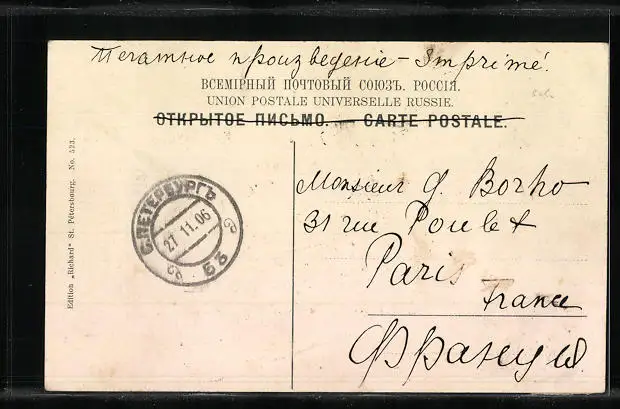 Печатное произведеніе - Imprimé.
ВСЕМІРНЫЙ ПОЧТОВЫЙ СОЮЗЪ. РОССІЯ.
UNION POSTALE UNIVERSELLE RUSSIE.
ОТКРЫТОЕ ПИСЬМО. — CARTE POSTALE.
Monsieur G. Borho
31 rue Poulet
Paris
France
Франція
С.ПЕТЕРБУРГЪ
27 11.06
Edition „Richard" St. Pétersbourg. No. 523.